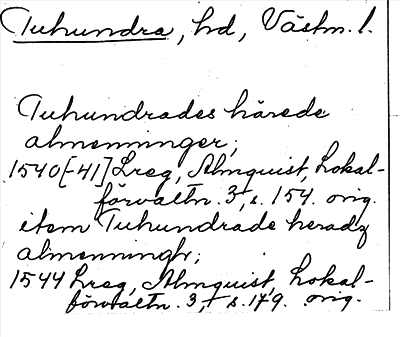 Tuhundra, hd, Västm. l.
Tuhundrades härede
almenninger;
1540[-41] Lreg, Almquist, Lokal-
förvaltn. 3, s. 154. orig.
item Tuhundrade heradz
almenningh;
1544 Lreg, Almquist, Lokal-
förvaltn. 3, s. 179. orig.